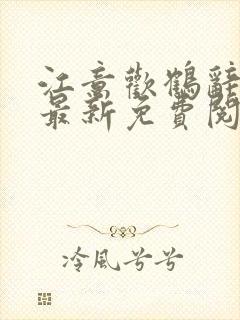 江意歡鶴辭
最新免費閱
冷風兮兮